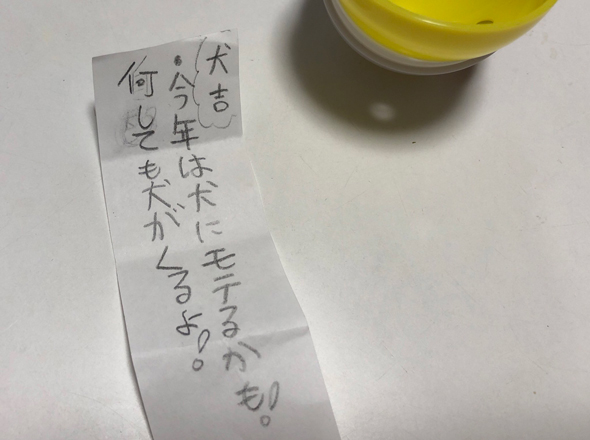 犬吉
・今年は犬にモテるかも!
何しても犬がくるよ!